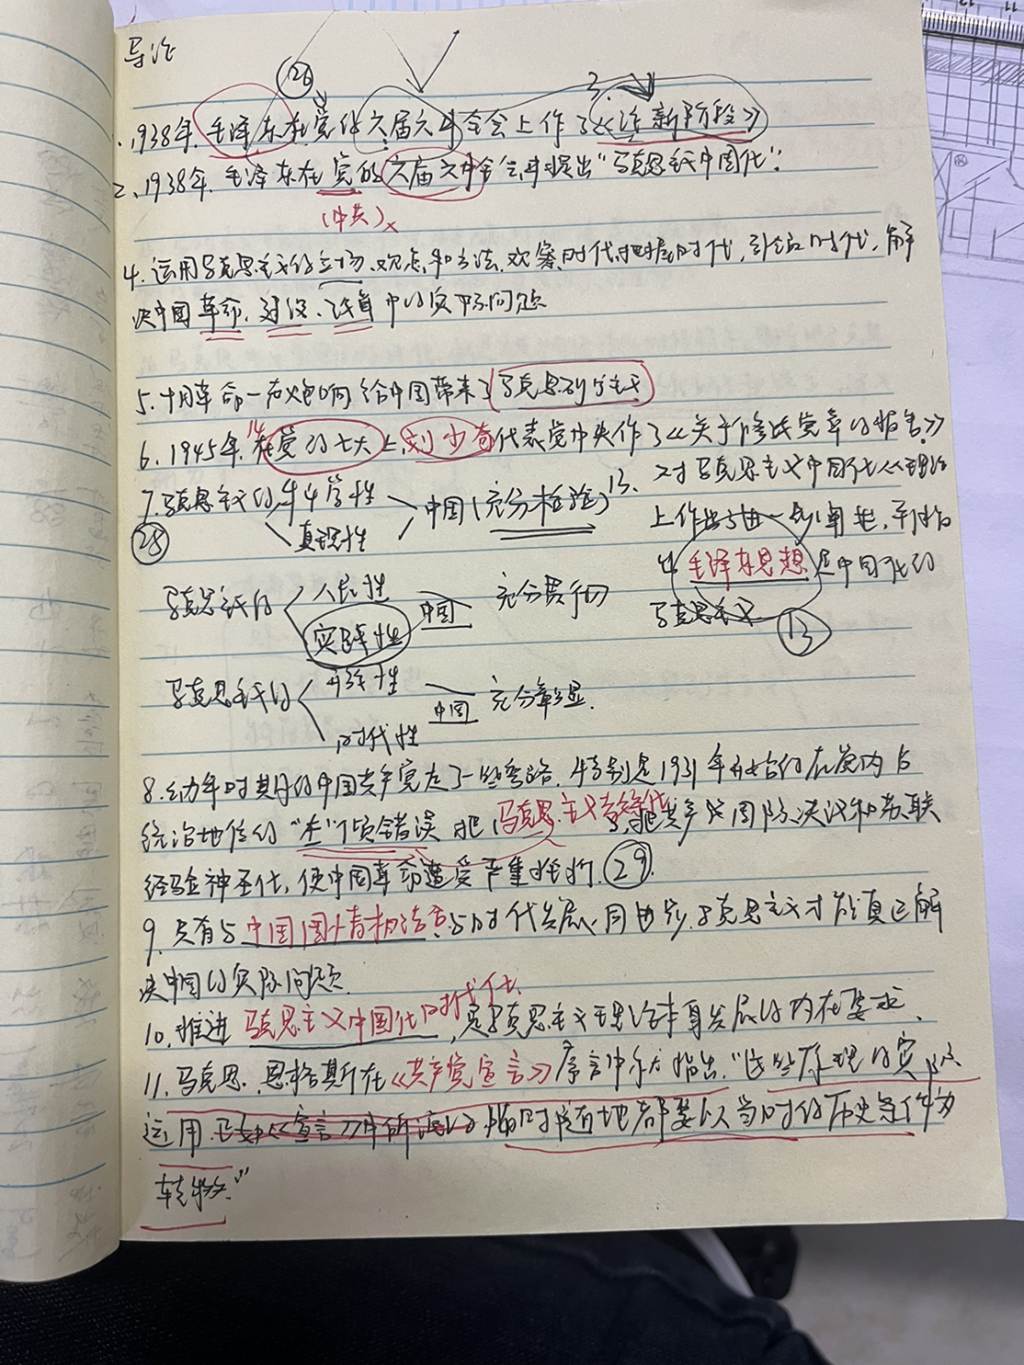 导论
26
3.
1.1938年.毛泽东在党的六届六中全会上作了《论新阶段》
2、1938年.毛泽东在党的六届六中全会上提出"马克思主义中国化".
(中共)
4.运用马克思主义的立场、观点和方法,观察时代,把握时代,引领时代,解
决中国革命、建设、改革中的实际问题
5.十月革命一声炮响给中国带来了马克思列宁主义
6.1945年.在党的七大上刘少奇代表党中央作了《关于修改党章的报告》
14
7.马克思主义的科学性 中国(充分检验)
真理性
28
13.
对马克思主义中国化从理论
上作出了进一步阐述,并指
出毛泽东思想是中国化的
马克思主义
13
马克思主义的 人民性 中国 充分贯彻
实践性
马克思主义的 开放性 中国 充分彰显.
时代性
8.幼年时期的中国共产党走了一些弯路.特别是1931年开始的在党内占
统治地位的"左"倾错误把马克思主义教条化,把共产国际决议和苏联
经验神圣化,使中国革命遭受严重挫折.29
9.只有与中国国情相结合、与时代发展同进步.马克思主义才能真正解
决中国的实际问题.
10.推进马克思主义中国化时代化,是马克思主义理论本身发展的内在要求.
11.马克思.恩格斯在《共产党宣言》序言中指出."这些原理的实际
运用.正如《宣言》中所说的.随时随地都要以当时的历史条件为
转移."